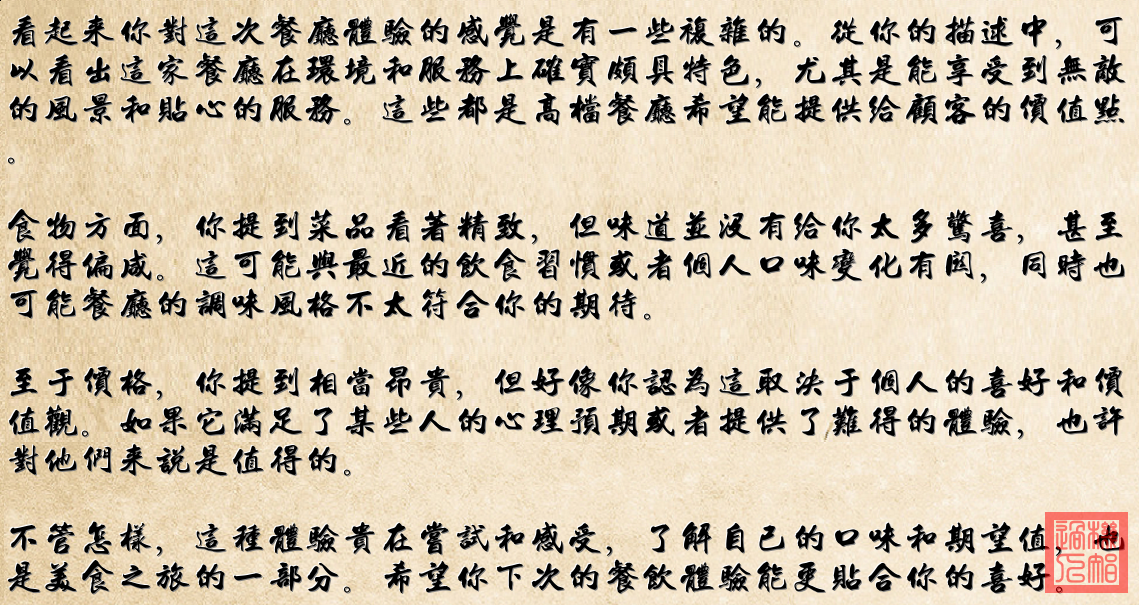 看起来你對這次餐廳體驗的感覺是有一些複雜的。從你的描述中，可
以看出這家餐廳在環境和服務上確實頗具特色，尤其是能享受到無敵
的風景和貼心的服務。這些都是高檔餐廳希望能提供給顧客的價值點
。
食物方面，你提到菜品看著精致，但味道並沒有給你太多驚喜，甚至
覺得偏咸。這可能與最近的飲食習慣或者個人口味變化有関，同時也
可能餐廳的調味風格不太符合你的期待。
至于價格，你提到相當昂貴，但好像你認為這取決于個人的喜好和價
值觀。如果它滿足了某些人的心理預期或者提供了難得的體驗，也許
對他們来說是值得的。
不管怎樣，這種體驗貴在嘗試和感受，了解自己的口味和期望值，也
是美食之旅的一部分。希望你下次的餐飲體驗能更貼合你的喜好。